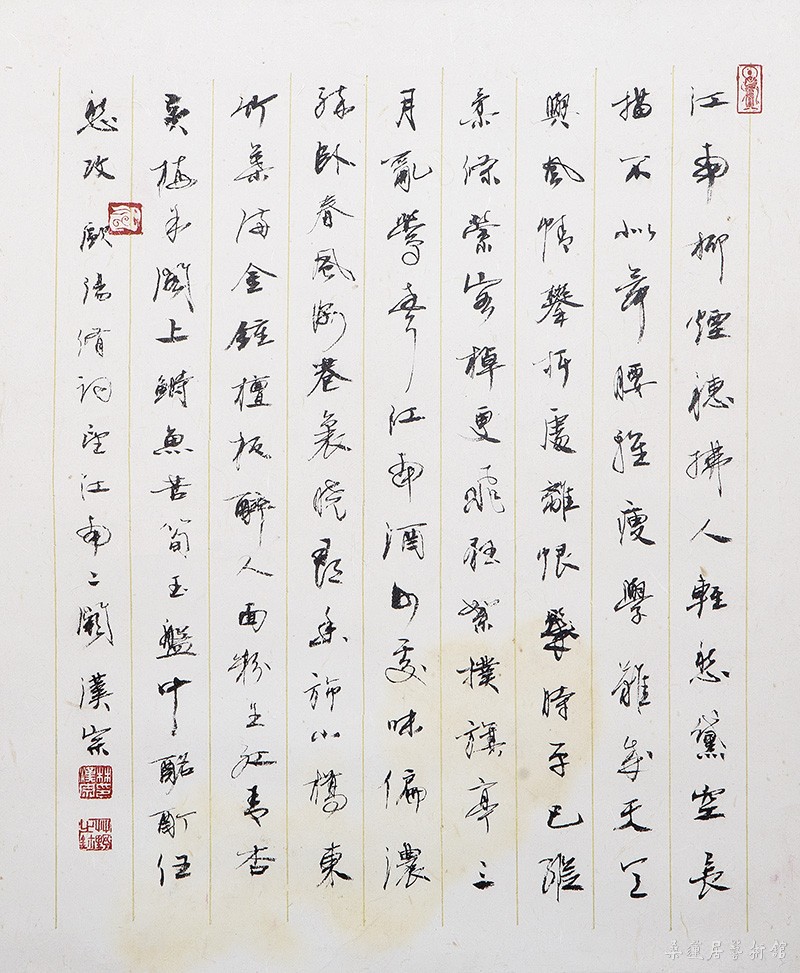 江南柳煙穗拂人輕愁黛空長
描不似舞腰雖瘦學難成天意
與風情攀折處離恨幾時平已縱
柔條縈客棹更飛狂絮撲旗亭三
月亂鶯聲江南酒何處味偏濃
醉臥春風深巷裏曉尋香旆小橋東
竹葉滿金鍾檀板醉人面粉生紅青杏
黃梅朱閣上鰣魚苦筍玉盤中酩酊任
愁攻歐陽脩詞望江南二闋漢宗
居藝術館